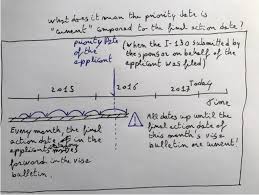 what does it mean the priority date is
"current" compared to the final action date?
priority date
of the
applicant
(When the I-130 submitted by
the sponsor on behalf of the
applicant was filed)
2015
2016
2017
Today
Time
Every month the final
action date in the
applicant moves
forward in the visa
bulletin.
All dates up until the
final action date of
this month's visa
bulletin are current!